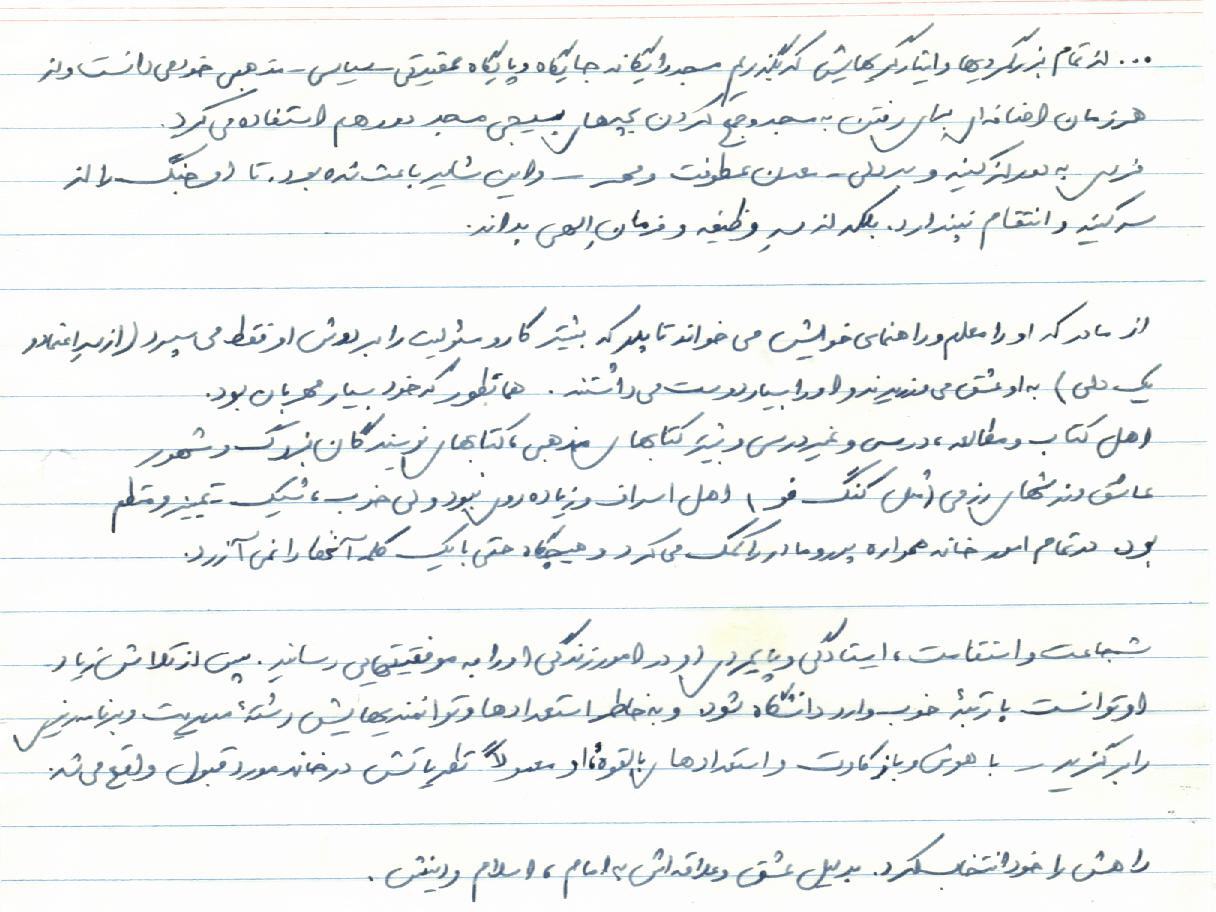 ... از تمام بزرگردیها و ایثارگریهایش که بگذریم مسجد را یگانه جایگاه و پایگاه عقیدتی - سیاسی - مذهبی خود می دانست و از
هر زمان اضافه ای برای رفتن به مسجد و جمع کردن بچه های بسیجی مسجد دور هم استفاده می کرد.
فردی به دور از کینه و بددلی - معدن عطوفت و مهر - و این شاید باعث شده بود. تا او جنگ را از
سر کینه و انتقام نپندارد. بلکه از سرِ وظیفه و فرمانِ الهی بداند.
از مادر که او را معلم و راهنمای خویش می خواند تا پدر که بیشتر کار و مسئولیت را بر دوش او فقط می سپرد (از سرِ اعتماد و
یک دلی) به او عشق می ورزیدند و او را بسیار دوست می داشتند. همانطور که خود بسیار مهربان بود.
اهل کتاب و مطالعه، درسی و غیر درسی و بیشتر کتابهای مذهبی، کتابهای نویسندگان بزرگ و مشهور
عاشق ورزشهای رزمی (مثل کنگ فو) اهل اسراف و زیاده روی نبود ولی خوب، شیک - تمیز و منظم
بود در تمام امور خانه همواره پدر و مادر را کمک می کرد و هیچگاه حتی با یک کلمه آنها را نمی آزرد.
شجاعت و استقامت، ایستادگی و پایمردی او در امور زندگی او را به موفقیتهایی رسانید. پس از تلاش زیاد
او توانست با رتبهٔ خوب وارد دانشگاه شود و به خاطر استعدادها و توانمندیهایش رشتهٔ مدیریت و برنامه ریزی
را برگزید - با هوش و با ذکاوت و استعدادهای بالقوهٔ او معمولاً نظریاتش در خانه مورد قبول واقع می شد.
راهش را خود انتخاب کرد. بدلیل عشق و علاقه اش به امام، اسلام و دینش.